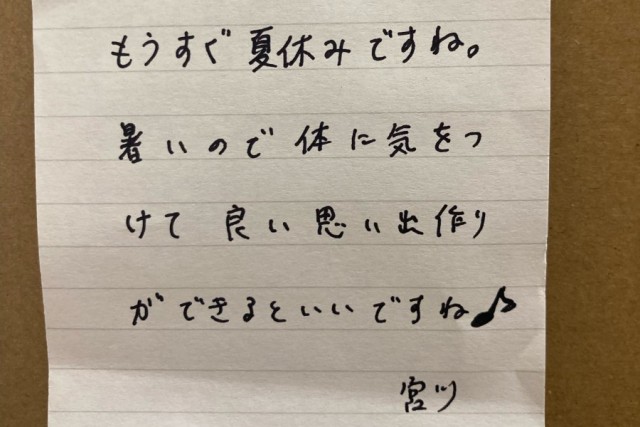 もうすぐ夏休みですね。
暑いので体に気をつ
けて良い思い出作り
ができるといいですね♪
宮川